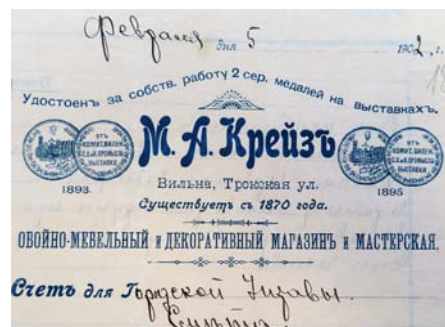 Февраля дня 5 1902 г.
Удостоенъ за собств. работу 2 сер. медалей на выставкахъ.
М. А. Крейзъ
1893 1895
Вильна, Трокская ул.
Существуетъ съ 1870 года.
ОБОЙНО-МЕБЕЛЬНЫЙ и ДЕКОРАТИВНЫЙ МАГАЗИНЪ и МАСТЕРСКАЯ.
Счетъ для Городской Управы.